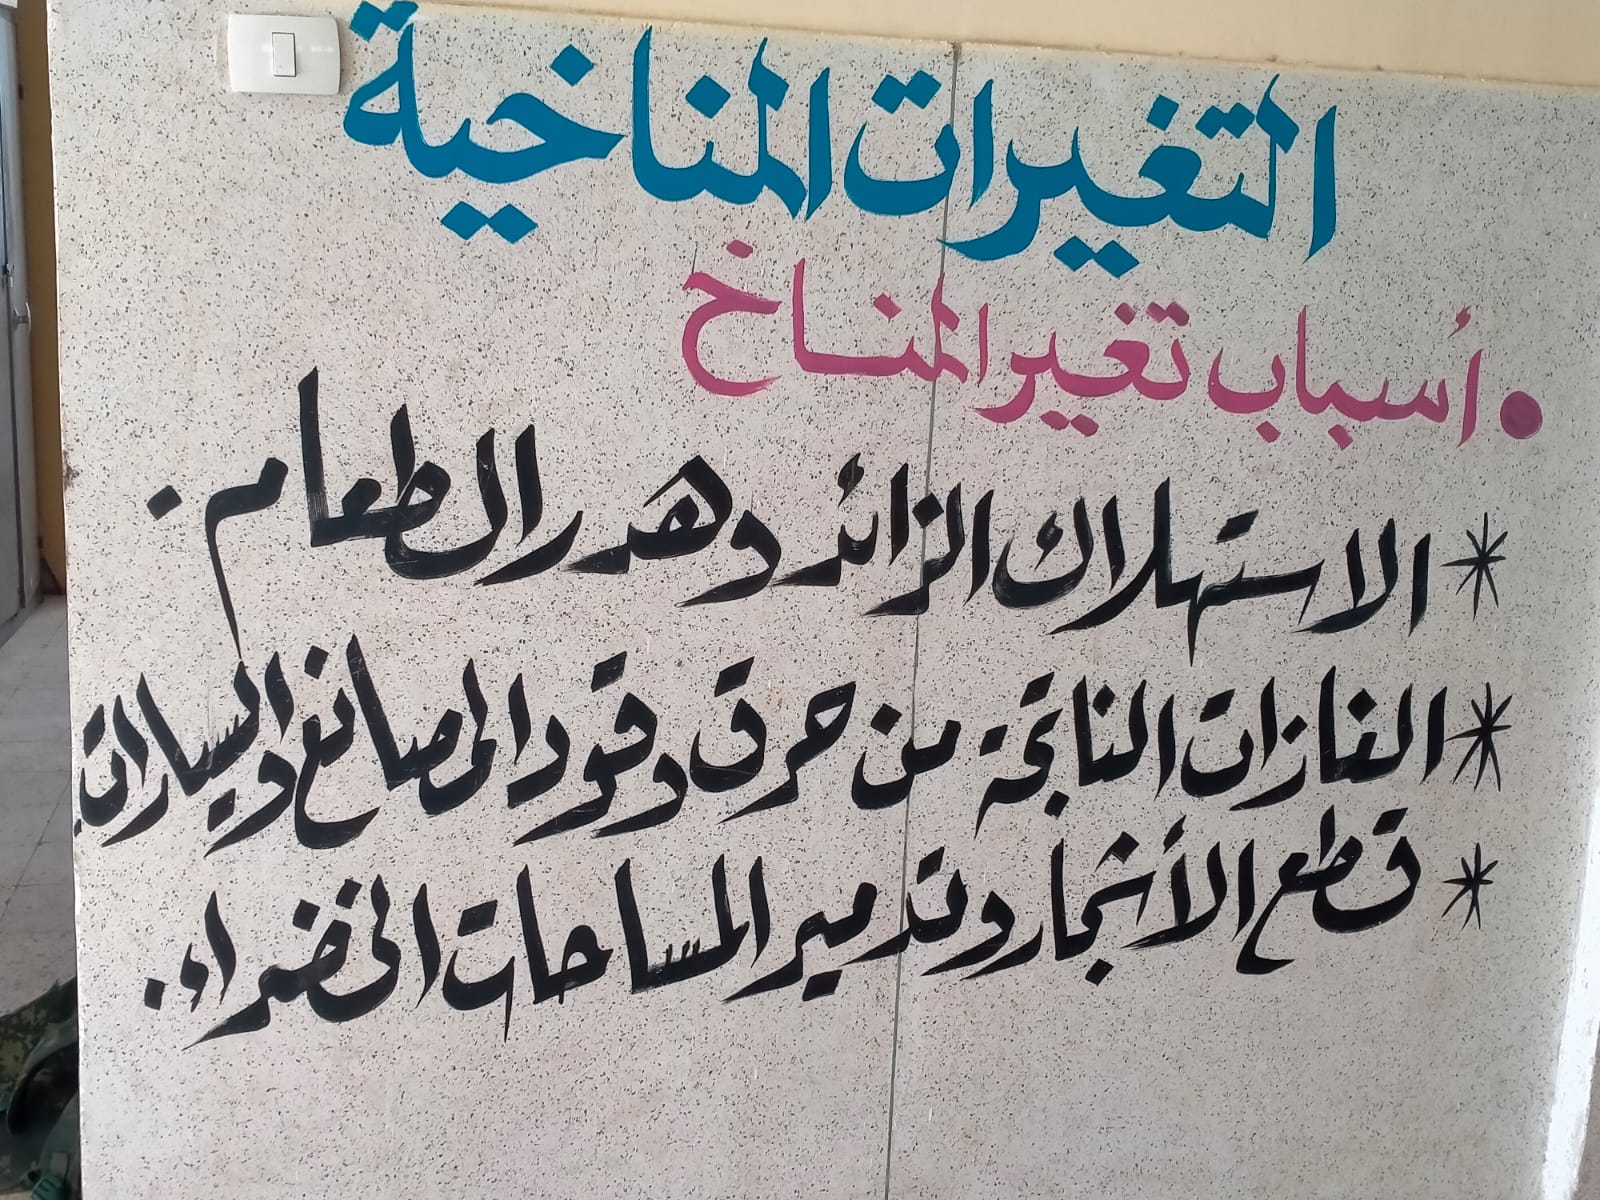 التغيرات المناخية
• أسباب تغير المناخ
* الاستهلاك الزائد وهدر الطعام .
* الغازات الناتجة من حرق وقود المصانع والسيارات.
* قطع الأشجار وتدمير المساحات الخضراء .